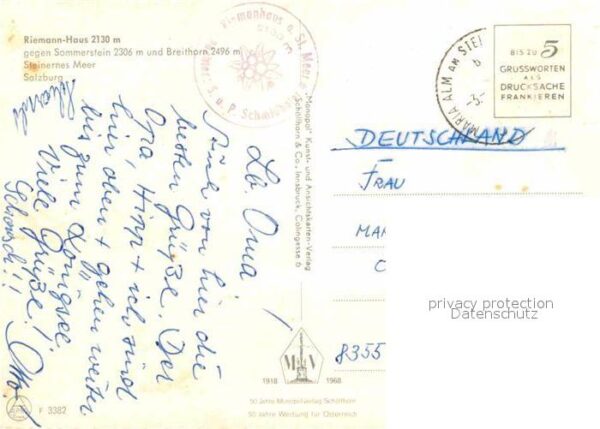 Riemann-Haus 2130 m
gegen Sommerstein 2306 m und Breithorn 2496 m
Steinernes Meer
Salzburg
Riemannhaus a. St. Meer
2130 m
MARIA ALM AM STEI
BIS ZU 5
GRUSSWORTEN
ALS
DRUCKSACHE
FRANKIEREN
"Monopol" Kunst- und Ansichtskarten-Verlag
Schöllhorn & Co., Innsbruck, Colingasse 6
Lb. Oma!
Auch von hier die
besten Grüße. Der
Opa, Hipp + ich sind
hier oben + gehen weiter
bis zum Königsee
Viele Grüße!
Schorsch!!
Otto!
DEUTSCHLAND
FRAU
MAR
C
8355
privacy protection
Datenschutz
1918 1968
50 Jahre Monopol-Verlag Schöllhorn
50 Jahre Werbung für Österreich
F 3382